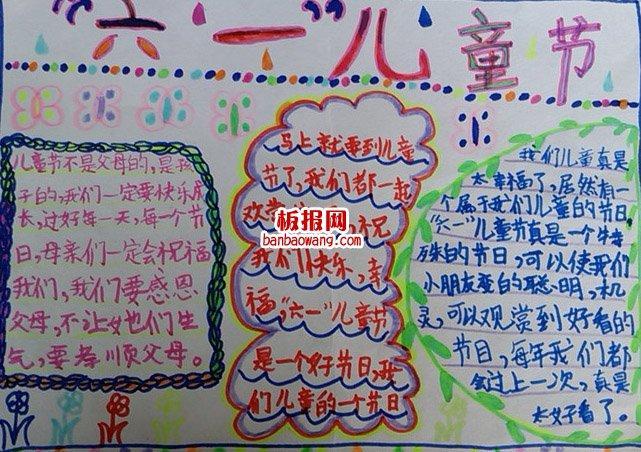 "六一"儿童节
儿童节不是父母的,是孩
子的,我们一定要快乐成
长,过好每一天,每一个节
日,母亲们一定会祝福
我们,我们要感恩
父母,不让她们生
气,要孝顺父母。
马上就要到儿童
节了,我们都一起
欢 祝
我们快乐,幸
福,"六一"儿童节
是一个好节日,我
们儿童的一个节日
板报网
banbaowang.com
我们儿童真是
太幸福了,居然有一
个属于我们儿童的节日
"六一"儿童节真是一个特
殊的节日,可以使我们
小朋友变的聪明,机
灵,可以观赏到好看的
节目,每年我们都
会过上一次,真是
太好看了。